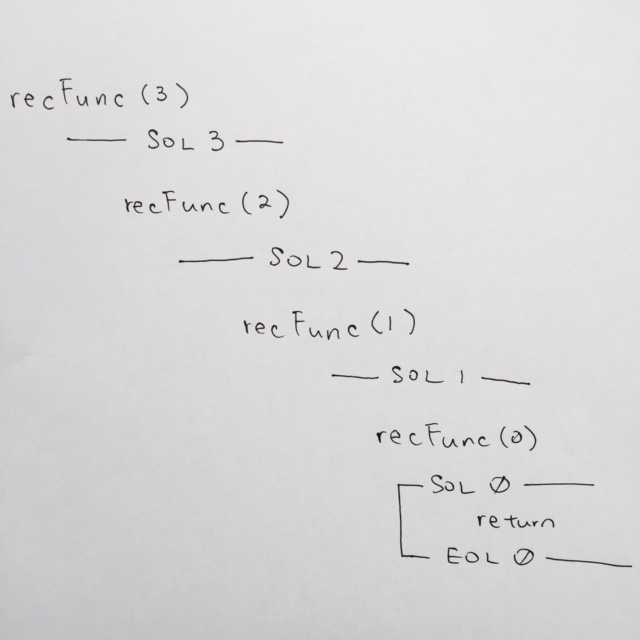 recFunc (3)
SOL 3
recFunc (2)
SOL 2
recFunc (1)
SOL 1
recFunc (0)
SOL Ø
return
EOL Ø